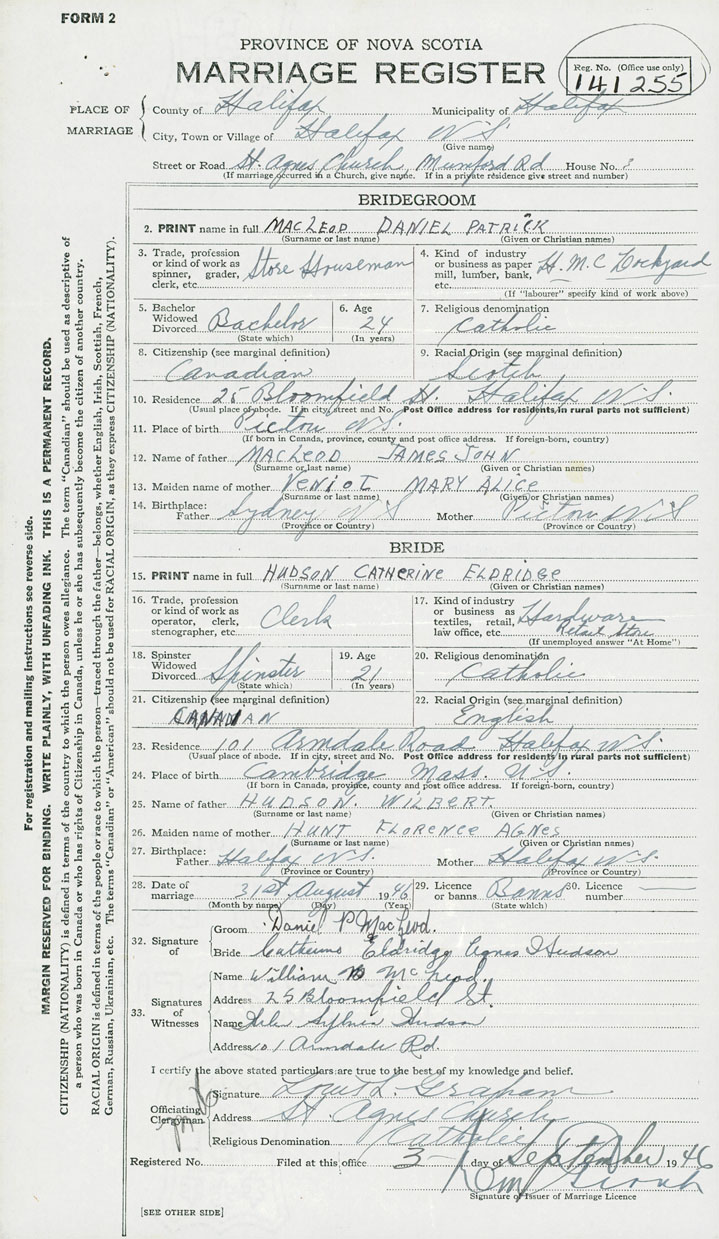 FORM 2
PROVINCE OF NOVA SCOTIA
MARRIAGE REGISTER
Reg. No. (Office use only)
141255
PLACE OF MARRIAGE
County of Halifax Municipality of Halifax
City, Town or Village of Halifax N.S.
(Give name)
Street or Road St. Agnes Church, Mumford Rd House No.
(If marriage occurred in a Church, give name. If in a private residence give street and number)
BRIDEGROOM
2. PRINT name in full MACLEOD DANIEL PATRICK
(Surname or last name) (Given or Christian names)
3. Trade, profession or kind of work as spinner, grader, clerk, etc. Store Houseman
4. Kind of industry or business as paper mill, lumber, bank, etc. H.M.C Dockyard
(If "labourer" specify kind of work above)
5. Bachelor Widowed Divorced Bachelor
(State which)
6. Age 24
(In years)
7. Religious denomination Catholic
8. Citizenship (see marginal definition) Canadian
9. Racial Origin (see marginal definition) Scotch
10. Residence 25 Bloomfield St. Halifax N.S.
(Usual place of abode. If in city, street and No. Post Office address for residents in rural parts not sufficient)
11. Place of birth Pictou N.S.
(If born in Canada, province, county and post office address. If foreign-born, country)
12. Name of father MACLEOD JAMES JOHN
(Surname or last name) (Given or Christian names)
13. Maiden name of mother VENIOT MARY ALICE
(Surname or last name) (Given or Christian names)
14. Birthplace: Father Sydney N S Mother Pictou N S
(Province or Country) (Province or Country)
BRIDE
15. PRINT name in full HUDSON CATHERINE ELDRIDGE
(Surname or last name) (Given or Christian names)
16. Trade, profession or kind of work as operator, clerk, stenographer, etc. Clerk
17. Kind of industry or business as textiles, retail, law office, etc. Hardware Retail Store
(If unemployed answer "At Home")
18. Spinster Widowed Divorced Spinster
(State which)
19. Age 21
(In years)
20. Religious denomination Catholic
21. Citizenship (see marginal definition) CANADIAN
22. Racial Origin (see marginal definition) English
23. Residence 101 Armdale Road Halifax N.S.
(Usual place of abode. If in city, street and No. Post Office address for residents in rural parts not sufficient)
24. Place of birth Cambridge Mass. U.S.
(If born in Canada, province, county and post office address. If foreign-born, country)
25. Name of father HUDSON. WILBERT.
(Surname or last name) (Given or Christian names)
26. Maiden name of mother HUNT FLORENCE AGNES
(Surname or last name) (Given or Christian names)
27. Birthplace: Father Halifax N.S. Mother Halifax N.S.
(Province or Country) (Province or Country)
28. Date of marriage 31st August 1946
(Month by name) (Day) (Year)
29. Licence or banns Banns
(State which)
30. Licence number —
32. Signature of
Groom Daniel P MacLeod.
Bride Catherine Eldridge Agnes Hudson
33. Signatures of Witnesses
Name William McLeod.
Address 25 Bloomfield St.
Name Sylvia Hudson
Address 101 Armdale Rd.
I certify the above stated particulars are true to the best of my knowledge and belief.
Officiating Clergyman
Signature Louis L. Graham
Address St. Agnes Church
Religious Denomination Catholic
Registered No. Filed at this office 3 day of September 1946
Signature of Issuer of Marriage Licence
[SEE OTHER SIDE]
For registration and mailing instructions see reverse side.
MARGIN RESERVED FOR BINDING. WRITE PLAINLY, WITH UNFADING INK. THIS IS A PERMANENT RECORD.
CITIZENSHIP (NATIONALITY) is defined in terms of the country to which the person owes allegiance. The term "Canadian" should be used as descriptive of
a person who was born in Canada or who has rights of Citizenship in Canada, unless he or she has subsequently become the citizen of another country.
RACIAL ORIGIN is defined in terms of the people or race to which the person—traced through the father—belongs, whether English, Irish, Scottish, French,
German, Russian, Ukrainian, etc. The terms "Canadian" or "American" should not be used for RACIAL ORIGIN, as they express CITIZENSHIP (NATIONALITY).